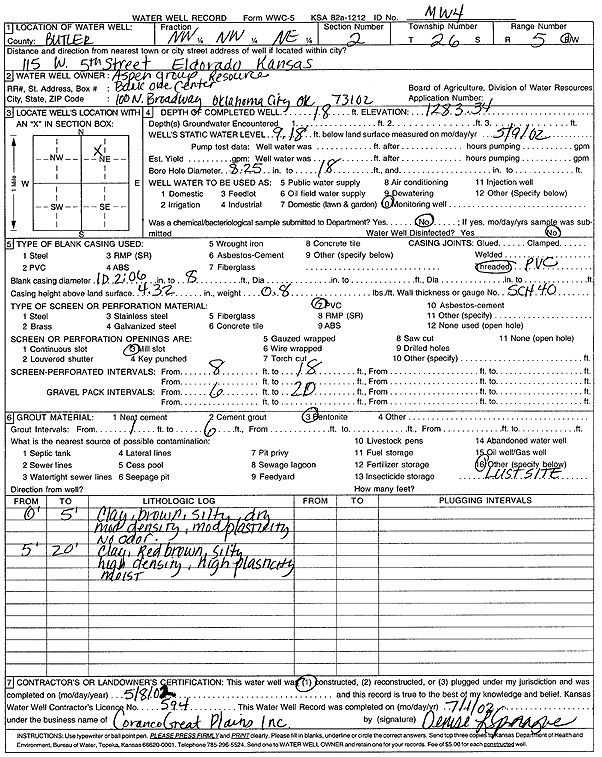 WATER WELL RECORD Form WWC-5 KSA 82a-1212 ID No. MW4
1 LOCATION OF WATER WELL: Fraction Section Number Township Number Range Number
County: BUTLER NW ¼ NW ¼ NE ¼ 2 T 26 S R 5 E/W
Distance and direction from nearest town or city street address of well if located within city?
115 W. 5th Street Eldorado Kansas
2 WATER WELL OWNER: Aspen group Resource
RR#, St. Address, Box # : One Center Board of Agriculture, Division of Water Resources
City, State, ZIP Code : 100 N. Broadway Oklahoma City OK 73102 Application Number:
3 LOCATE WELL'S LOCATION WITH AN "X" IN SECTION BOX:
N
NW NE
X
W E
SW SE
S
1 Mile
4 DEPTH OF COMPLETED WELL 18 ft. ELEVATION: 1283.34
Depth(s) Groundwater Encountered 1. ft. 2. ft. 3. ft.
WELL'S STATIC WATER LEVEL 9.18 ft. below land surface measured on mo/day/yr 5/9/02
Pump test data: Well water was ft. after hours pumping gpm
Est. Yield gpm: Well water was ft. after hours pumping gpm
Bore Hole Diameter 8.25 in. to 18 ft., and in. to ft.
WELL WATER TO BE USED AS: 5 Public water supply 8 Air conditioning 11 Injection well
1 Domestic 3 Feedlot 6 Oil field water supply 9 Dewatering 12 Other (Specify below)
2 Irrigation 4 Industrial 7 Domestic (lawn & garden) 10 Monitoring well
Was a chemical/bacteriological sample submitted to Department? Yes No ; If yes, mo/day/yrs sample was sub-
mitted Water Well Disinfected? Yes No
5 TYPE OF BLANK CASING USED: 5 Wrought iron 8 Concrete tile CASING JOINTS: Glued Clamped
1 Steel 3 RMP (SR) 6 Asbestos-Cement 9 Other (specify below) Welded
2 PVC 4 ABS 7 Fiberglass Threaded PVC
Blank casing diameter ID 2.06 in. to 8 ft., Dia in. to ft., Dia in. to ft.
Casing height above land surface 4.32 in., weight 0.8 lbs./ft. Wall thickness or gauge No. SCH 40
TYPE OF SCREEN OR PERFORATION MATERIAL: 7 PVC 10 Asbestos-cement
1 Steel 3 Stainless steel 5 Fiberglass 8 RMP (SR) 11 Other (specify)
2 Brass 4 Galvanized steel 6 Concrete tile 9 ABS 12 None used (open hole)
SCREEN OR PERFORATION OPENINGS ARE: 5 Gauzed wrapped 8 Saw cut 11 None (open hole)
1 Continuous slot 3 Mill slot 6 Wire wrapped 9 Drilled holes
2 Louvered shutter 4 Key punched 7 Torch cut 10 Other (specify) ft.
SCREEN-PERFORATED INTERVALS: From 8 ft. to 18 ft., From ft. to ft.
From ft. to ft., From ft. to ft.
GRAVEL PACK INTERVALS: From 6 ft. to 20 ft., From ft. to ft.
From ft. to ft., From ft. to ft.
6 GROUT MATERIAL: 1 Neat cement 2 Cement grout 3 Bentonite 4 Other
Grout Intervals: From 1 ft. to 6 ft., From ft. to ft., From ft. to ft.
What is the nearest source of possible contamination: 10 Livestock pens 14 Abandoned water well
1 Septic tank 4 Lateral lines 7 Pit privy 11 Fuel storage 15 Oil well/Gas well
2 Sewer lines 5 Cess pool 8 Sewage lagoon 12 Fertilizer storage 16 Other (specify below)
3 Watertight sewer lines 6 Seepage pit 9 Feedyard 13 Insecticide storage LUST SITE
Direction from well? How many feet?
FROM TO LITHOLOGIC LOG FROM TO PLUGGING INTERVALS
0' 5' Clay, brown, silty, dry
mod density, mod plasticity
No odor.
5' 20' Clay, Red brown, silty
high density, high plasticity
moist
7 CONTRACTOR'S OR LANDOWNER'S CERTIFICATION: This water well was (1) constructed, (2) reconstructed, or (3) plugged under my jurisdiction and was
completed on (mo/day/year) 5/8/02 and this record is true to the best of my knowledge and belief. Kansas
Water Well Contractor's Licence No. 594 This Water Well Record was completed on (mo/day/yr) 7/1/02
under the business name of Coranco Great Plains Inc. by (signature) Denise Sprague
INSTRUCTIONS: Use typewriter or ball point pen. PLEASE PRESS FIRMLY and PRINT clearly. Please fill in blanks, underline or circle the correct answers. Send top three copies to Kansas Department of Health and
Environment, Bureau of Water, Topeka, Kansas 66620-0001. Telephone 785-296-5524. Send one to WATER WELL OWNER and retain one for your records. Fee of $5.00 for each constructed well.